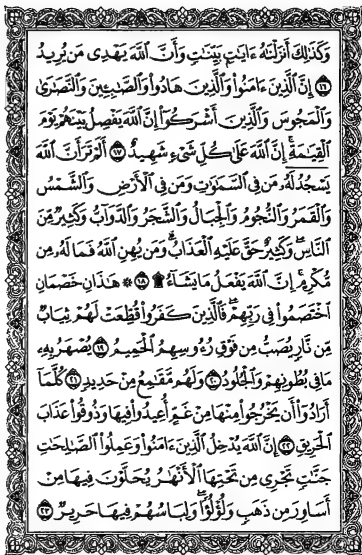 وَكَذَٰلِكَ أَنزَلْنَٰهُ ءَايَٰتٍۭ بَيِّنَٰتٍ وَأَنَّ ٱللَّهَ يَهْدِى مَن يُرِيدُ
﴿١٦﴾ إِنَّ ٱلَّذِينَ ءَامَنُوا۟ وَٱلَّذِينَ هَادُوا۟ وَٱلصَّٰبِـِٔينَ وَٱلنَّصَٰرَىٰ
وَٱلْمَجُوسَ وَٱلَّذِينَ أَشْرَكُوٓا۟ إِنَّ ٱللَّهَ يَفْصِلُ بَيْنَهُمْ يَوْمَ
ٱلْقِيَٰمَةِ ۚ إِنَّ ٱللَّهَ عَلَىٰ كُلِّ شَىْءٍ شَهِيدٌ ﴿١٧﴾ أَلَمْ تَرَ أَنَّ ٱللَّهَ
يَسْجُدُ لَهُۥ مَن فِى ٱلسَّمَٰوَٰتِ وَمَن فِى ٱلْأَرْضِ وَٱلشَّمْسُ
وَٱلْقَمَرُ وَٱلنُّجُومُ وَٱلْجِبَالُ وَٱلشَّجَرُ وَٱلدَّوَآبُّ وَكَثِيرٌ مِّنَ
ٱلنَّاسِ ۖ وَكَثِيرٌ حَقَّ عَلَيْهِ ٱلْعَذَابُ ۗ وَمَن يُهِنِ ٱللَّهُ فَمَا لَهُۥ مِن
مُّكْرِمٍ ۚ إِنَّ ٱللَّهَ يَفْعَلُ مَا يَشَآءُ ۩ ﴿١٨﴾ ۞ هَٰذَانِ خَصْمَانِ
ٱخْتَصَمُوا۟ فِى رَبِّهِمْ ۖ فَٱلَّذِينَ كَفَرُوا۟ قُطِّعَتْ لَهُمْ ثِيَابٌ
مِّن نَّارٍ يُصَبُّ مِن فَوْقِ رُءُوسِهِمُ ٱلْحَمِيمُ ﴿١٩﴾ يُصْهَرُ بِهِۦ
مَا فِى بُطُونِهِمْ وَٱلْجُلُودُ ﴿٢٠﴾ وَلَهُم مَّقَٰمِعُ مِنْ حَدِيدٍ ﴿٢١﴾ كُلَّمَآ
أَرَادُوٓا۟ أَن يَخْرُجُوا۟ مِنْهَا مِنْ غَمٍّ أُعِيدُوا۟ فِيهَا وَذُوقُوا۟ عَذَابَ
ٱلْحَرِيقِ ﴿٢٢﴾ إِنَّ ٱللَّهَ يُدْخِلُ ٱلَّذِينَ ءَامَنُوا۟ وَعَمِلُوا۟ ٱلصَّٰلِحَٰتِ
جَنَّٰتٍ تَجْرِى مِن تَحْتِهَا ٱلْأَنْهَٰرُ يُحَلَّوْنَ فِيهَا مِنْ
أَسَاوِرَ مِن ذَهَبٍ وَلُؤْلُؤًا ۖ وَلِبَاسُهُمْ فِيهَا حَرِيرٌ ﴿٢٣﴾